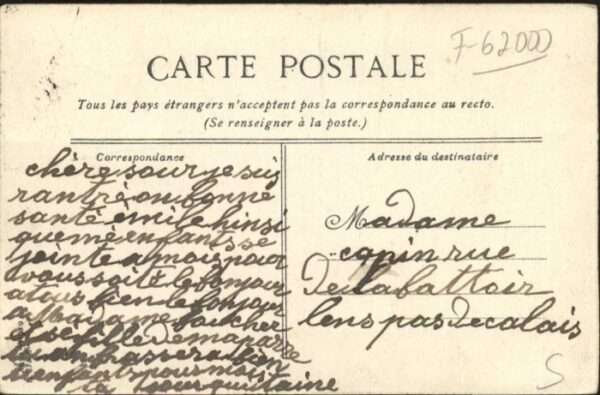 F-62000
CARTE POSTALE
Tous les pays étrangers n'acceptent pas la correspondance au recto.
(Se renseigner à la poste.)
Correspondance
chère sour je suis
rantré on bonne
santé émile hinsi
que mé enfants se
jointe a moi pour
vous soité le bonjour
bien le bonjour
a Madame boucher
et sé fille de ma par
tu anbrassera bien
t enfants pour moi
ta sour
Adresse du destinataire
Madame
capin rue
De labattoir
lens pas de calais
S